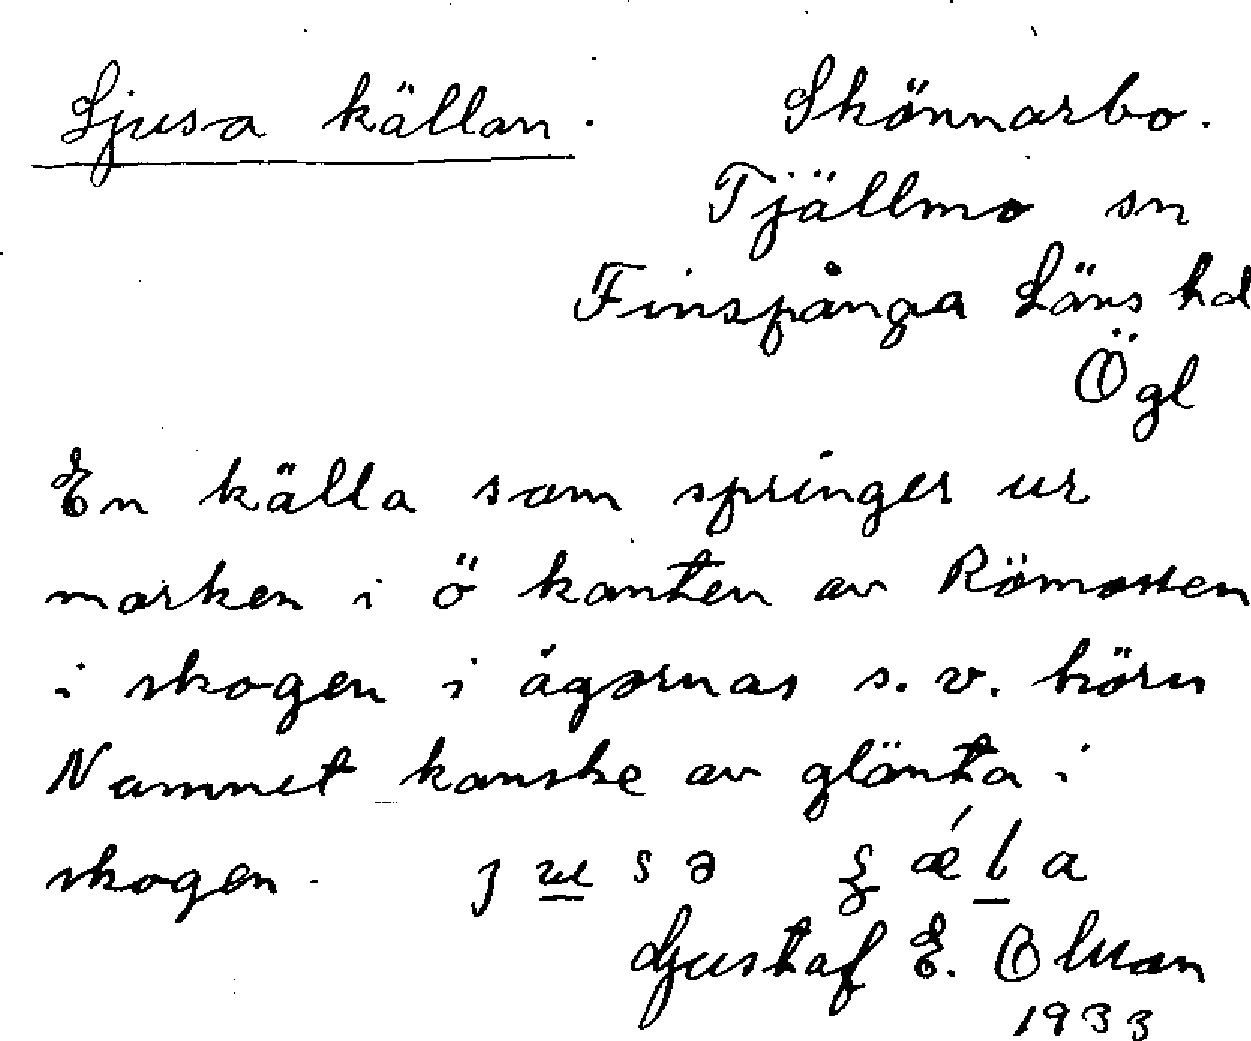 Ljusa källan. Skönnarbo.
Tjällmo sn
Finspånga Läns hd
Ögl
En källa som springer ur
marken i ö kanten av Römossen
i skogen i ägornas s.v. hörn
Namnet kanske av glänta i
skogen.
Gustaf E. Olsson
1933